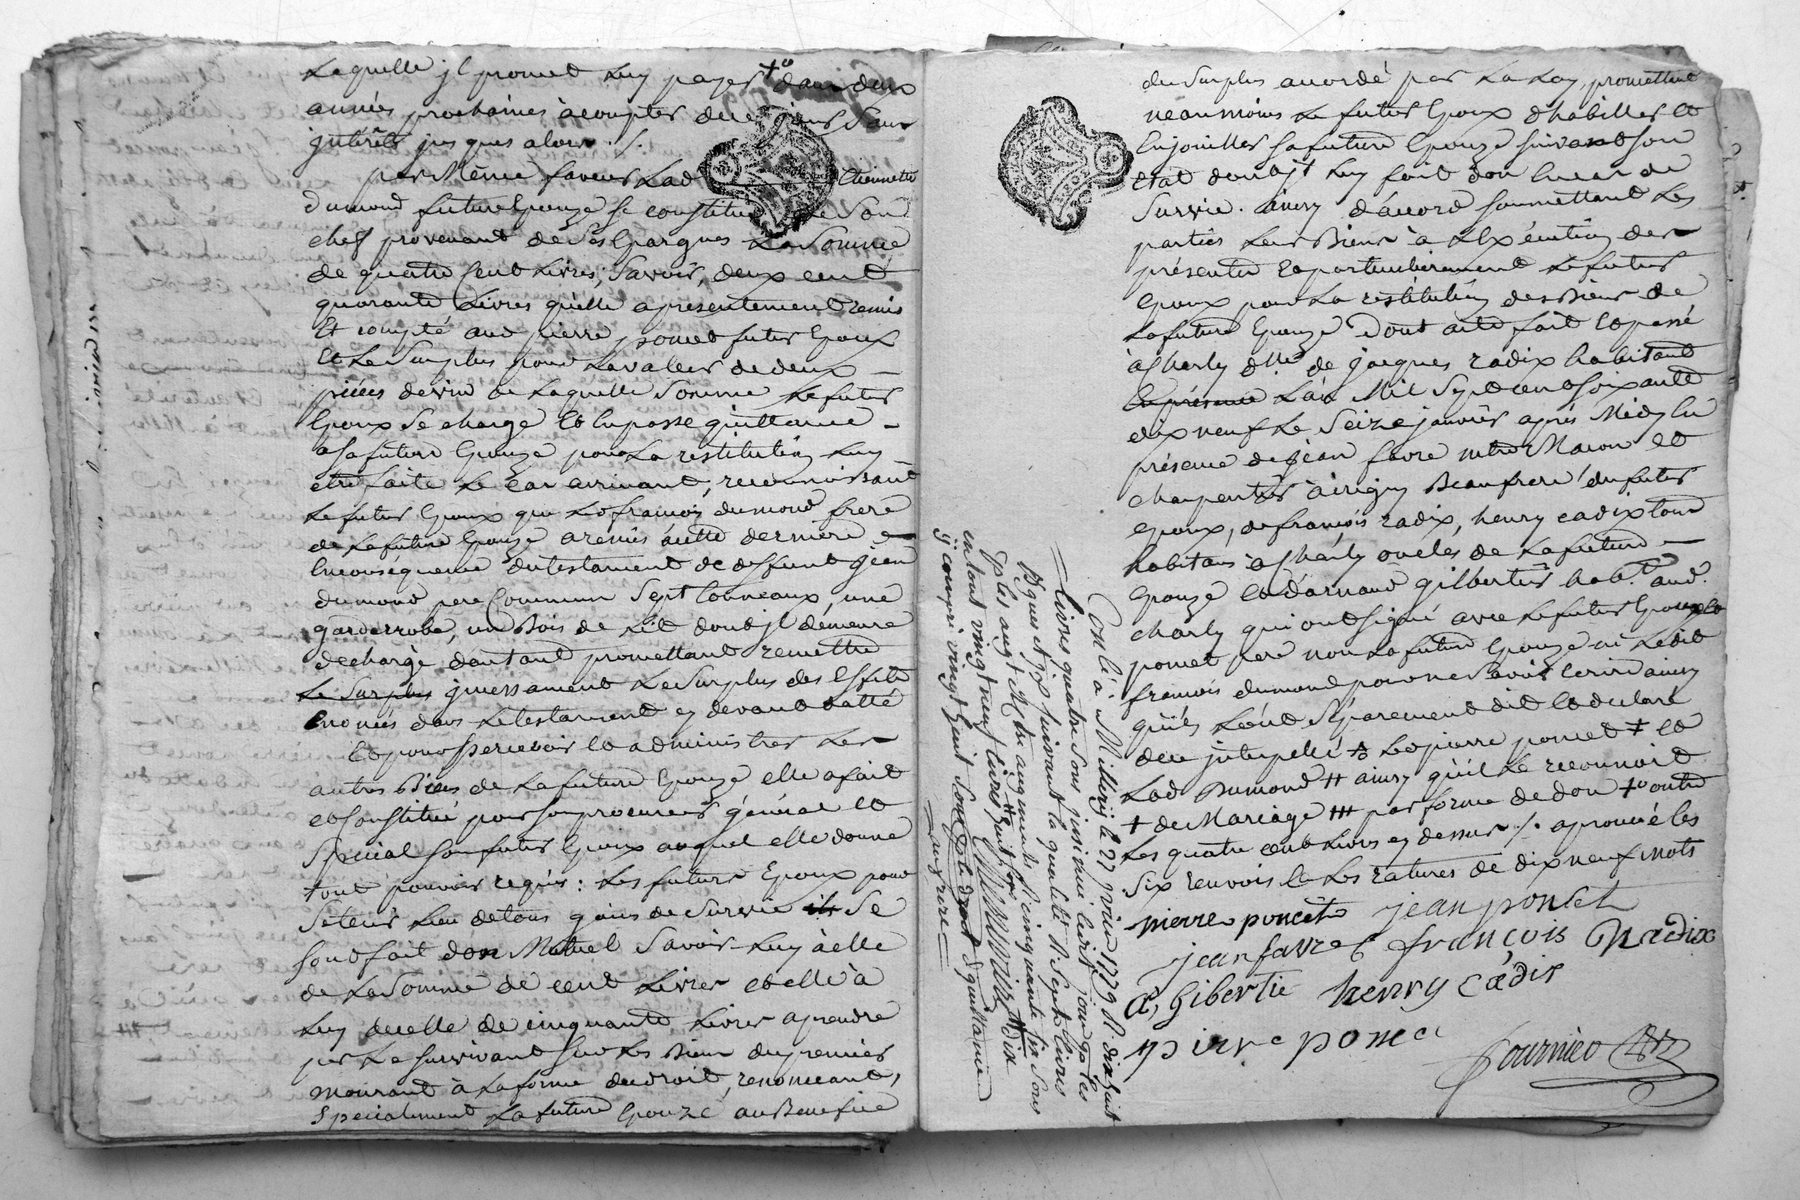 Laquelle jl promet luy payer +° dans deux
années prochaines à compter de ce jour sans
jnterêts jusques alors ./.
par Même faveur Lad Etiennette
Dumond future Epouze se constitue de Son
chef provenant de Ses Epargnes La Somme
de quatre Cent Livres, Savoir, deux cent
quarante Livres qu'elle a presentement remis
Et compté aud pierre poncet futur Epoux
Et Le Surplus pour La valleur de deux
pièces de vin de Laquelle Somme Le futur
Epoux Se charge Et en passe quittance
a Sa future Epouze pour La restitution Luy
etre faite Le Cas arrivant, reconnoissant
Le futur Epoux que Led francois dumond frere
de La future Epouze a remis à cette derniere
En conséquence du testament de deffunt Jean
Dumond pere Commun Sept tonneaux, une
garderrobe, un Bois de Lit dont jl demeure
dechargé d'autant promettant remettre
Le Surplus jncessament Le Surplus des Effets
Enoncés dans Le testament cy devant datté
Et pour percevoir et administrer Les
autres Biens de La future Epouze elle a fait
et Constitué pour Son procureur général et
Spécial Son futur Epoux auquel elle donne
tout pouvoir requis : Les futurs Epoux pour
Se tenir Lieu de tous gains de Survie Se
Sont fait don Mutuel Savoir Luy à elle
de La Somme de cent Livres et elle à
Luy de celle de cinquante Livres a prendre
par Le Survivant Sur Les Biens du premier
mourant à La forme du droit, renonceant
Specialement La future Epouze au Benefice
du Surplus accordé par La Loy, promettant
neanmoins Le futur Epoux d'habiller et
Enjoailler Sa future Epouze suivant Son
Etat dont jl Luy fait don En cas de
Survie. ainsy d'accord Soumettant Les
parties Leurs Biens à L'Exécution des
présentes et particulierement Le futur
Epoux pour La restitution des Biens de
La future Epouze Dont acte fait et passé
à Charly de Jacques radix habitant
En présence L'an Mil Sept cent Soixante
dix neuf Le Seize janvier après Midy En
présence de Jean favre Maitre Macon et
charpentier à irigny Beaufrere du futur
epoux, de françois radix, henry cadix tous
habitans à Charly oncles de La future
Epouze et d'arnaud gilbertier hab.t aud.
charly qui ont signé avec Le futur Epoux et
poncet pere non La future Epouze ni Ledit
francois dumond pour ne Savoir Ecrire ainsy
qu'ils L'ont Séparement dit et declaré
de ce jnterpellé Led pierre poncet + et
Lad Dumond ++ ainsy qu'il Le reconnoit
+ de Mariage +++ par forme de don +° outre
Les quatre cent Livres cy dessus ./. aprouvé les
Six renvois et les ratures de dix neuf mots
pierre poncet jean poncet
jean favre françois Radix
A, Gibertie henry Cadix
pierre ponce
fournier
Con.lé à Millery le 27 janvier 1779 R. dix huit
livres quatre sous
B quer suivant la qualité R. Sept livres
plus augt. R. du augment de cinquante six Sous
en tout vingt neuf livres huit
y compris vingt huit sous d'un droit d'quittance